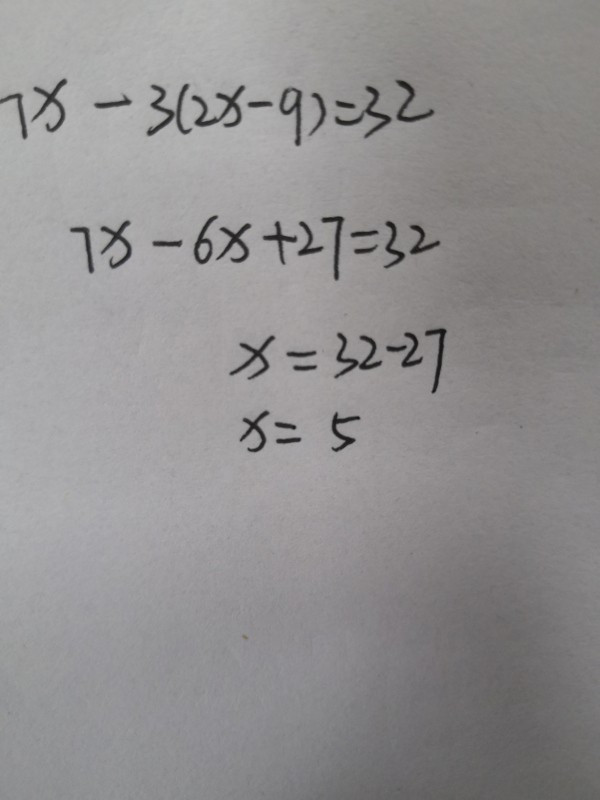 7x-3(2x-9)=32
7x-6x+27=32
x=32-27
x=5